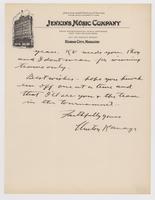 JENKINS MUSIC COMPANY
KANSAS CITY, MISSOURI
years. KU needs you Phog
and I don't mean for winning
teams only.
Best wishes. hope you knock
em off one at a time and
that I'll see you & the team
in the tournament.
Faithfully yours